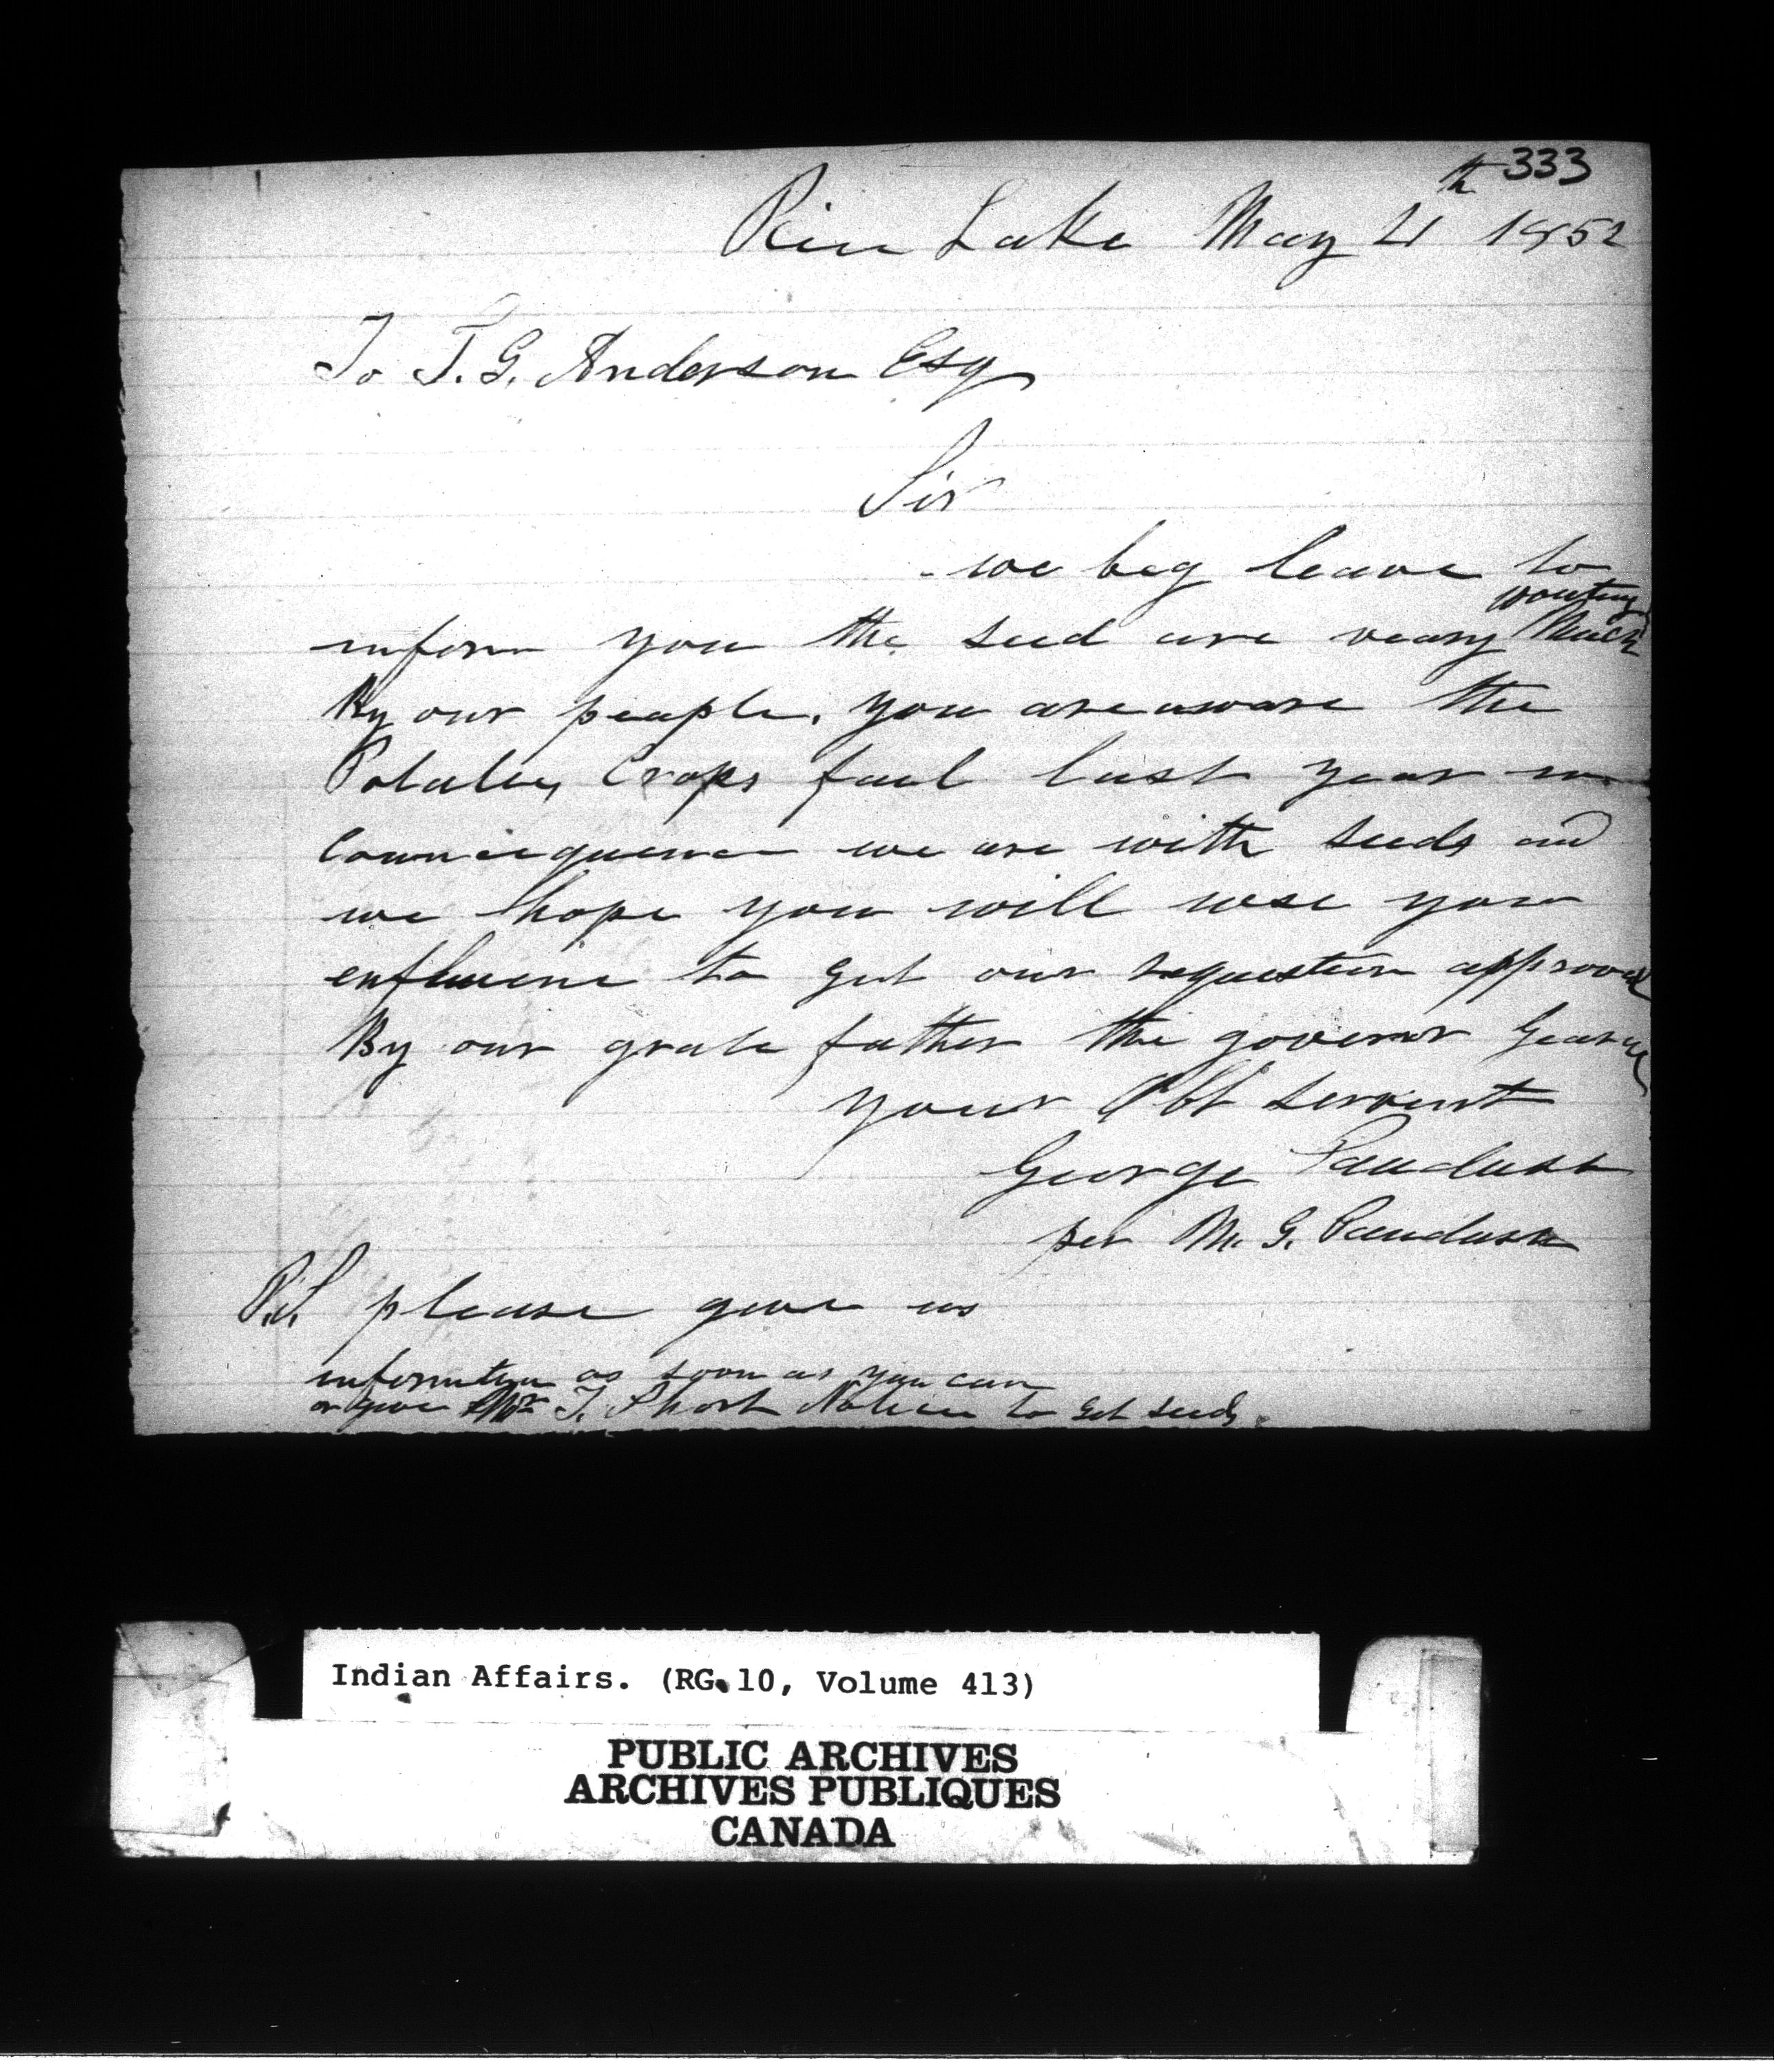 333
Rice Lake May 4th 1852
To T. G. Anderson Esq
Sir
we beg leave to
wanting
inform you the seed are veary Much
By our people. you are aware the
Potatoes Crops fail last year in
Counciequence we are with seeds and
we hope you will use your
enfluence to get our requestion approved
By our grate father the governor
your Obt servent
George Paudash
per M. G. Paudash
P.S. please give us
information as soon as you can
or give Mr T. Short Notice to get seeds.
Indian Affairs. (RG 10, Volume 413)
PUBLIC ARCHIVES
ARCHIVES PUBLIQUES
CANADA